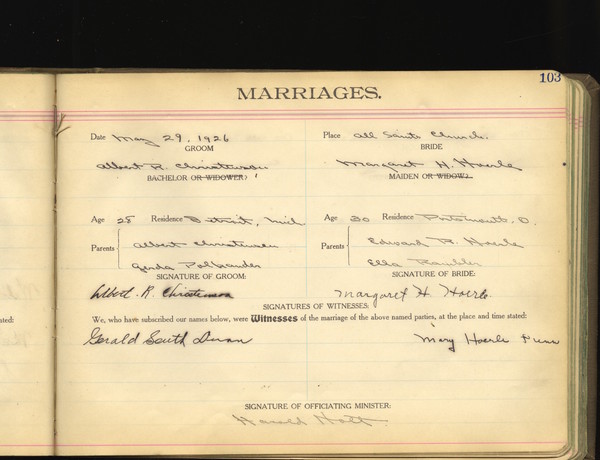 103
MARRIAGES.
Date May 29, 1926 Place All Saints Church.
GROOM BRIDE
Albert R. Christensen Margaret H. Hoerle
BACHELOR OR WIDOWER? MAIDEN OR WIDOW?
Age 28 Residence Detroit, Mich Age 30 Residence Portsmouth, O.
Parents Albert Christensen Parents Edward R. Hoerle
Gerda Ella
SIGNATURE OF GROOM: SIGNATURE OF BRIDE:
Albert R. Christensen Margaret H Hoerle
SIGNATURES OF WITNESSES:
ted: We, who have subscribed our names below, were Witnesses of the marriage of the above named parties, at the place and time stated:
Gerald South Mary Hoerle
SIGNATURE OF OFFICIATING MINISTER:
Harold Holt